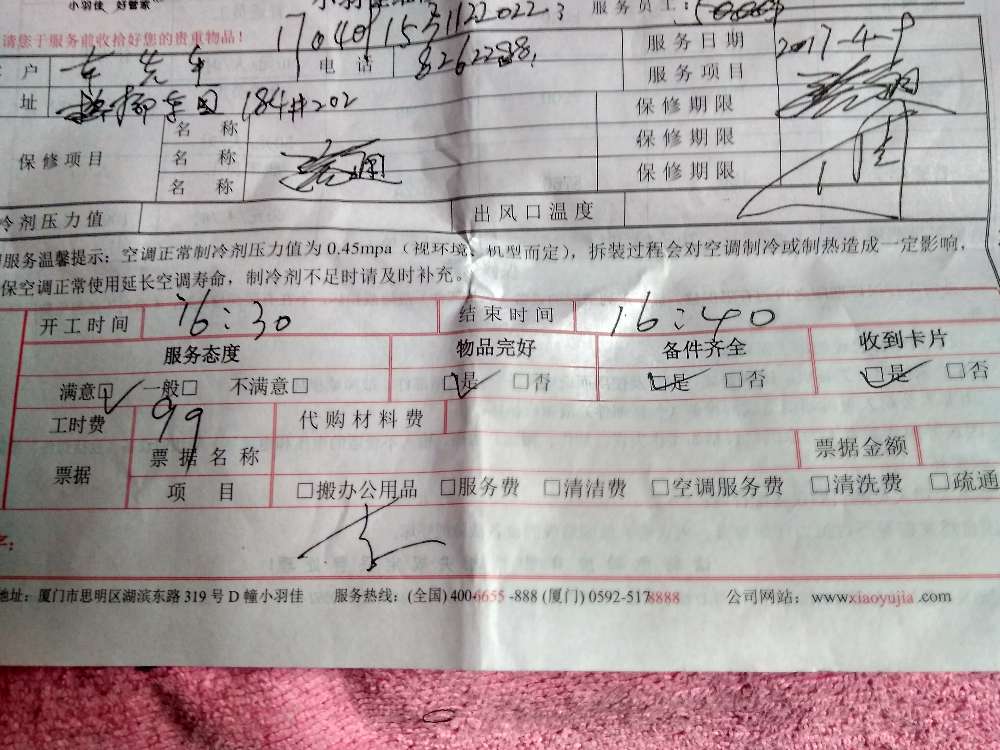 小羽佳 好管家
服务员工:
请您于服务前收拾好您的贵重物品!
户 先生 电话 服务日期 2017-4-9
服务项目
址 184#202 保修期限
保修项目 名称 保修期限
名称 保修期限
名称
冷剂压力值 出风口温度
服务温馨提示:空调正常制冷剂压力值为0.45mpa(视环境、机型而定),拆装过程会对空调制冷或制热造成一定影响,
保空调正常使用延长空调寿命,制冷剂不足时请及时补充。
开工时间 16:30 结束时间 16:40
服务态度 物品完好 备件齐全 收到卡片
满意☑ 一般□ 不满意□ ☑是 □否 ☑是 □否 ☑是 □否
工时费 99 代购材料费
票据 票据名称 票据金额
项目 □搬办公用品 □服务费 □清洁费 □空调服务费 □清洗费 □疏通
地址:厦门市思明区湖滨东路319号D幢小羽佳 服务热线:(全国)400-6655-888(厦门)0592-5178888 公司网站:www.xiaoyujia.com